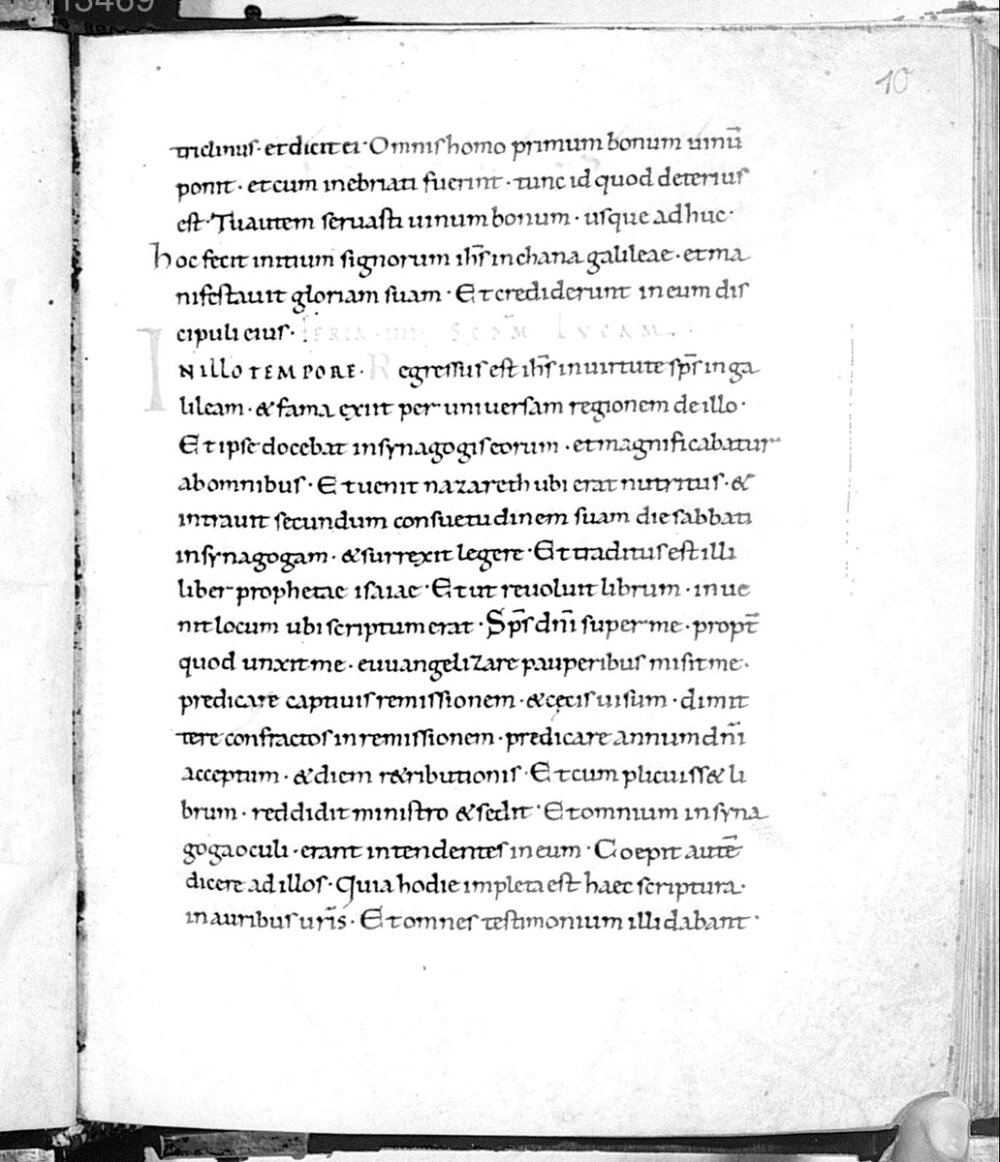 10
triclinus · et dicit ei · Omnis homo primum bonum uinū
ponit · et cum inebriati fuerint · tunc id quod deterius
est · Tu autem seruasti uinum bonum · usque adhuc ·
hoc fecit initium signorum ih̄s in chana galileae · et ma
nifestauit gloriam suam · Et crediderunt in eum dis
cipuli eius · FERIA · IIII · SCDM LVCAM ·
IN ILLO TEMPORE · Regressus est ih̄s in uirtute sp̄s in ga
lileam · & fama exiit per uniuersam regionem de illo ·
Et ipse docebat in synagogis eorum · et magnificabatur
ab omnibus · Et uenit nazareth ubi erat nutritus · &
intrauit secundum consuetudinem suam die sabbati
in synagogam · & surrexit legere · Et traditus est illi
liber prophetae isaiae · Et ut reuoluit librum · inue
nit locum ubi scriptum erat · Sp̄s dn̄i super me · propt̄
quod unxit me · euuangelizare pauperibus misit me ·
predicare captiuis remissionem · & cęcis uisum · dimit
tere confractos in remissionem · predicare annum dn̄i
acceptum · & diem r&ributionis · Et cum plicuiss& li
brum · reddidit ministro & sedit · Et omnium in syna
goga oculi · erant intendentes in eum · Coepit autē
dicere ad illos · Quia hodie impleta est haec scriptura ·
in auribus ur̄is · Et omnes testimonium illi dabant ·